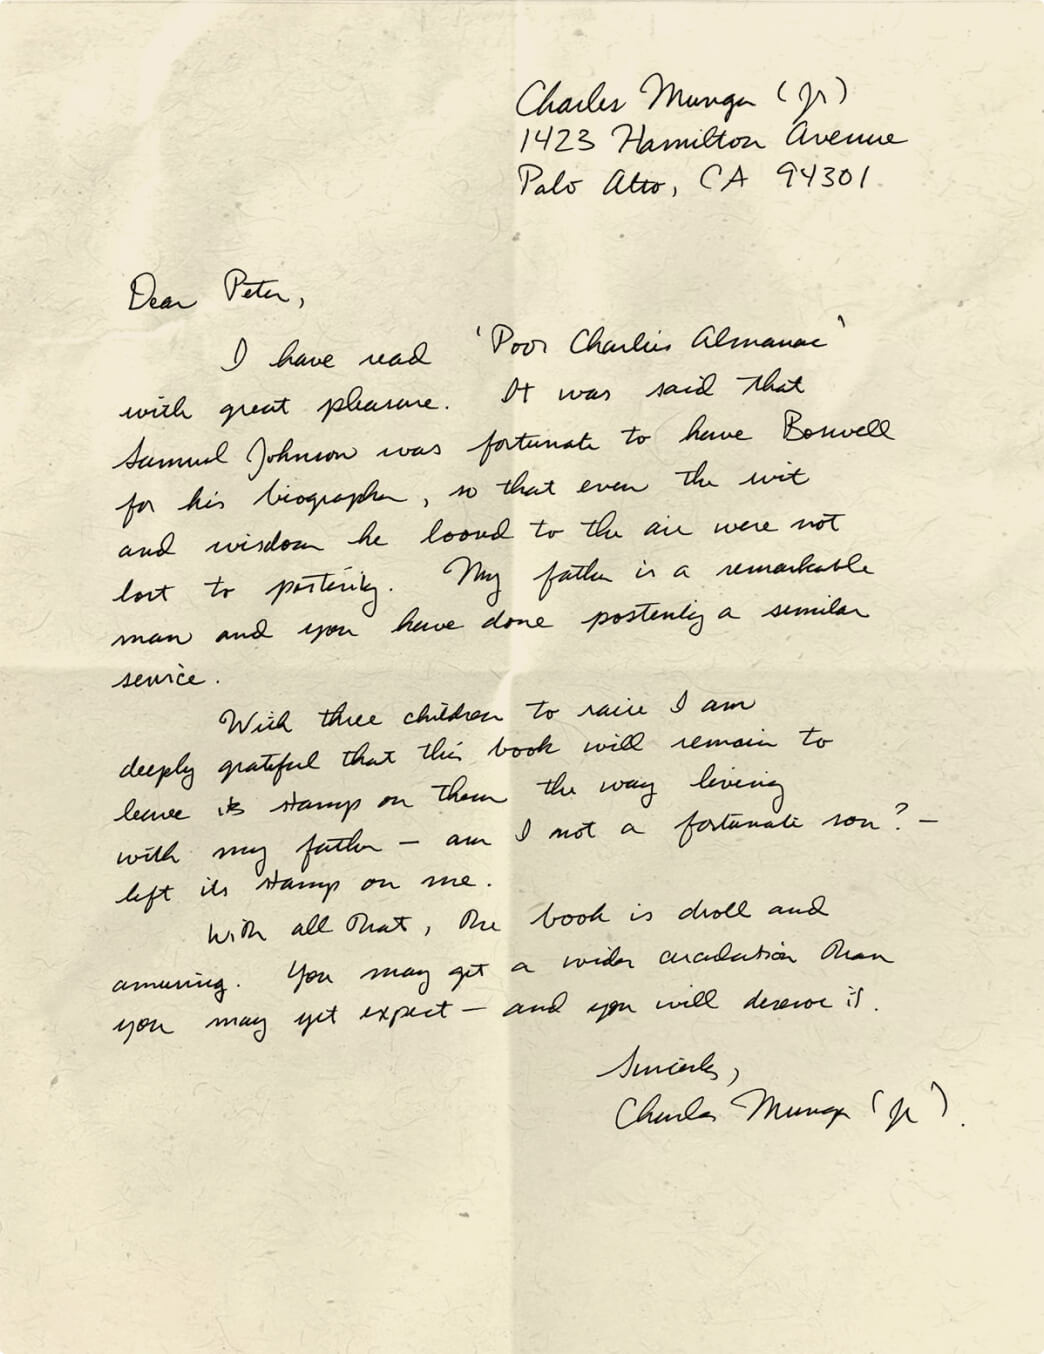 Charles Munger (Jr)
1423 Hamilton Avenue
Palo Alto, CA 94301
Dear Peter,
I have read 'Poor Charlies Almanac'
with great pleasure. It was said that
Samuel Johnson was fortunate to have Boswell
for his biographer, so that even the wit
and wisdom he loosed to the air were not
lost to posterity. My father is a remarkable
man and you have done posterity a similar
service.
With three children to raise I am
deeply grateful that this book will remain to
leave its stamp on them the way living
with my father — am I not a fortunate son? —
left its stamp on me.
With all that, the book is droll and
amusing. You may get a wider circulation than
you may yet expect — and you will deserve it.
Sincerely,
Charles Munger (Jr).